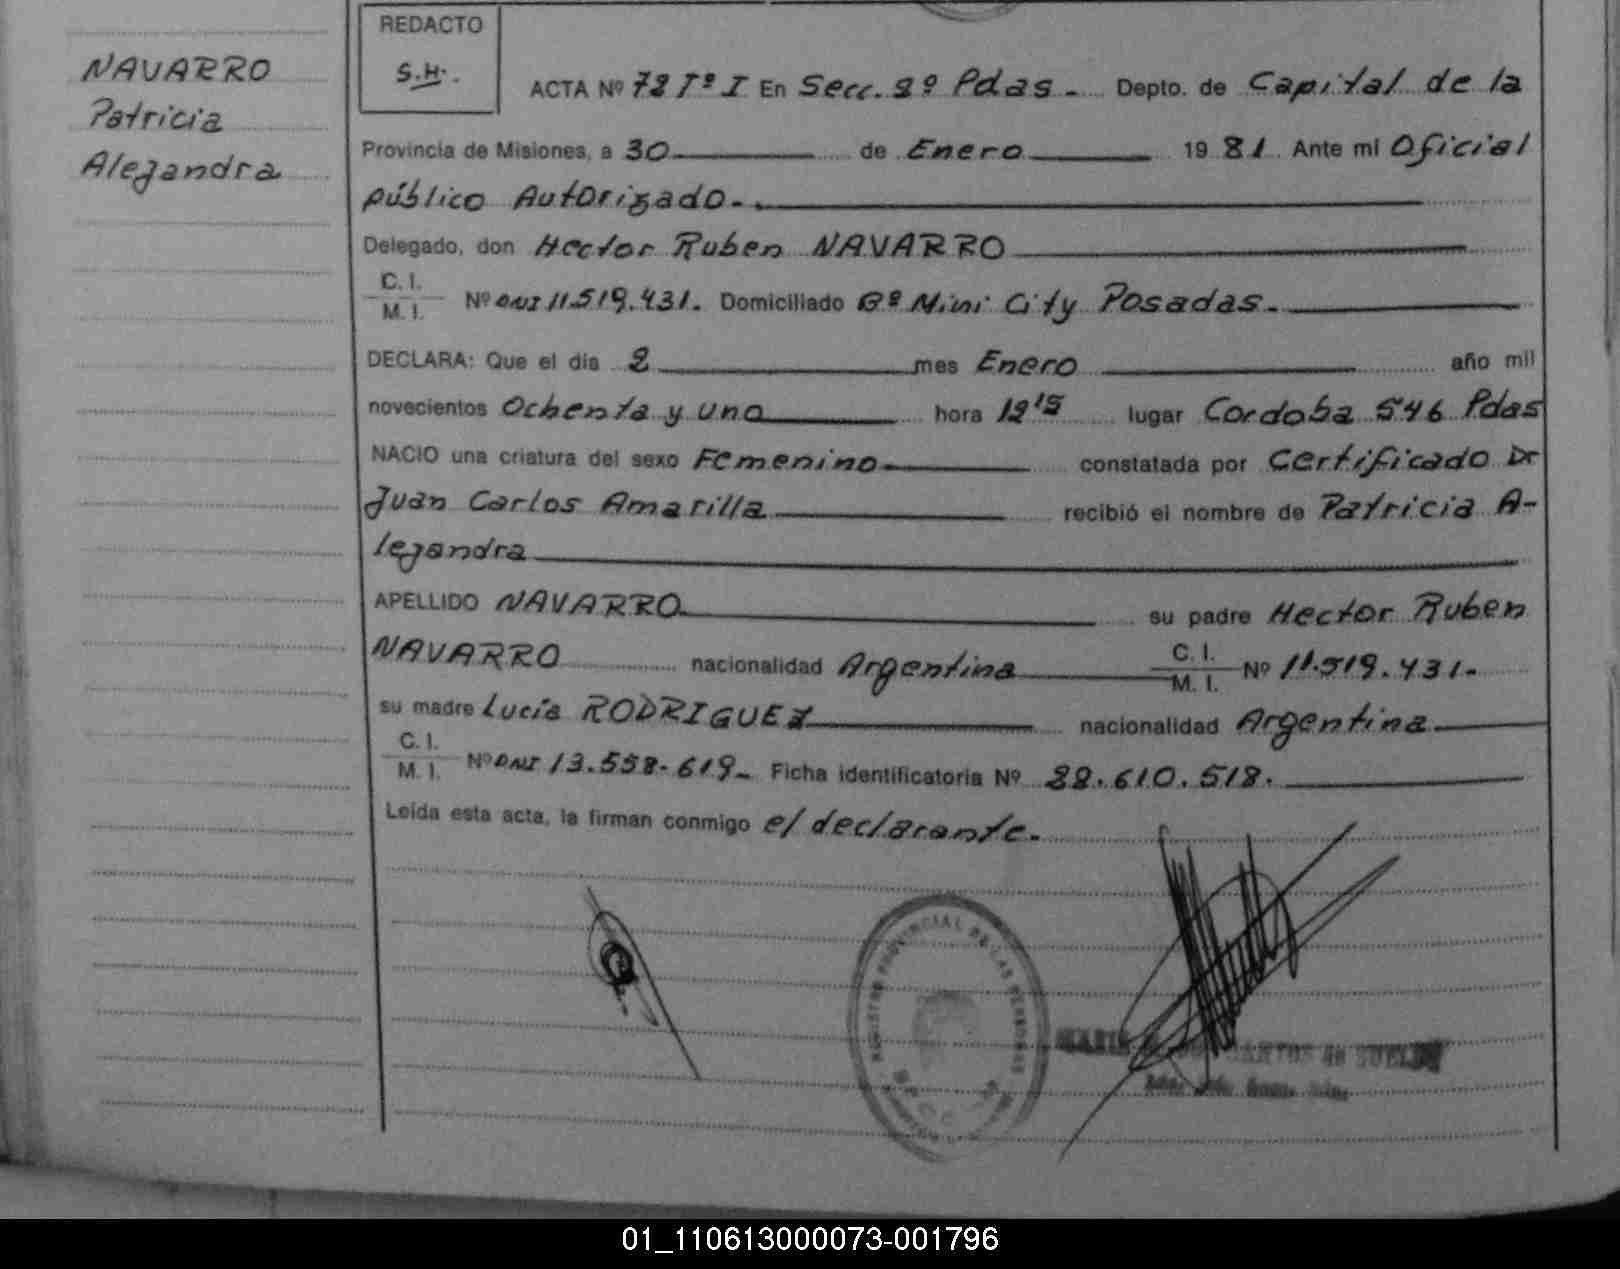 NAVARRO
Patricia
Alejandra
REDACTO
S.H.
ACTA Nº 72 Tº I En Secc. 2º Pdas. Depto. de Capital de la
Provincia de Misiones, a 30 de Enero 1981. Ante mi Oficial
público Autorizado.
Delegado, don Hector Ruben NAVARRO
C. I.
M. I. Nº DNI 11.519.431. Domiciliado Bº Mini City Posadas.
DECLARA: Que el dia 2 mes Enero año mil
novecientos Ochenta y uno hora 12'15 lugar Cordoba 546 Pdas
NACIO una criatura del sexo Femenino constatada por Certificado Dr
Juan Carlos Amarilla recibió el nombre de Patricia A-
lejandra
APELLIDO NAVARRO su padre Hector Ruben
NAVARRO nacionalidad Argentina C. I. M. I. Nº 11.519.431.
su madre Lucia RODRIGUEZ nacionalidad Argentina
C. I.
M. I. Nº DNI 13.558.619. Ficha identificatoria Nº 28.610.518.
Leída esta acta, la firman conmigo el declarante.
REGISTRO PROVINCIAL DE LAS PERSONAS
01_110613000073-001796